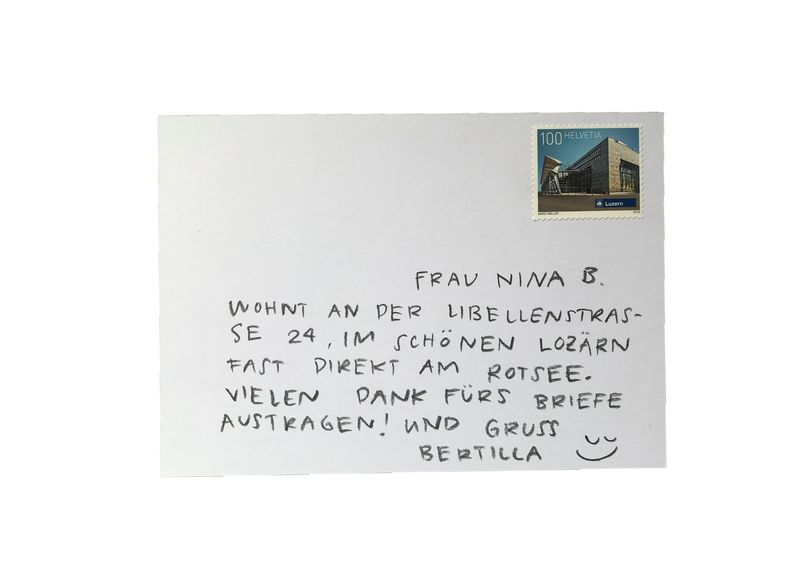 100 HELVETIA
Luzern
FRAU NINA B.
WOHNT AN DER LIBELLENSTRAS-
SE 24, IM SCHÖNEN LOZÄRN
FAST DIREKT AM ROTSEE.
VIELEN DANK FÜRS BRIEFE
AUSTRAGEN! UND GRUSS
BERTILLA